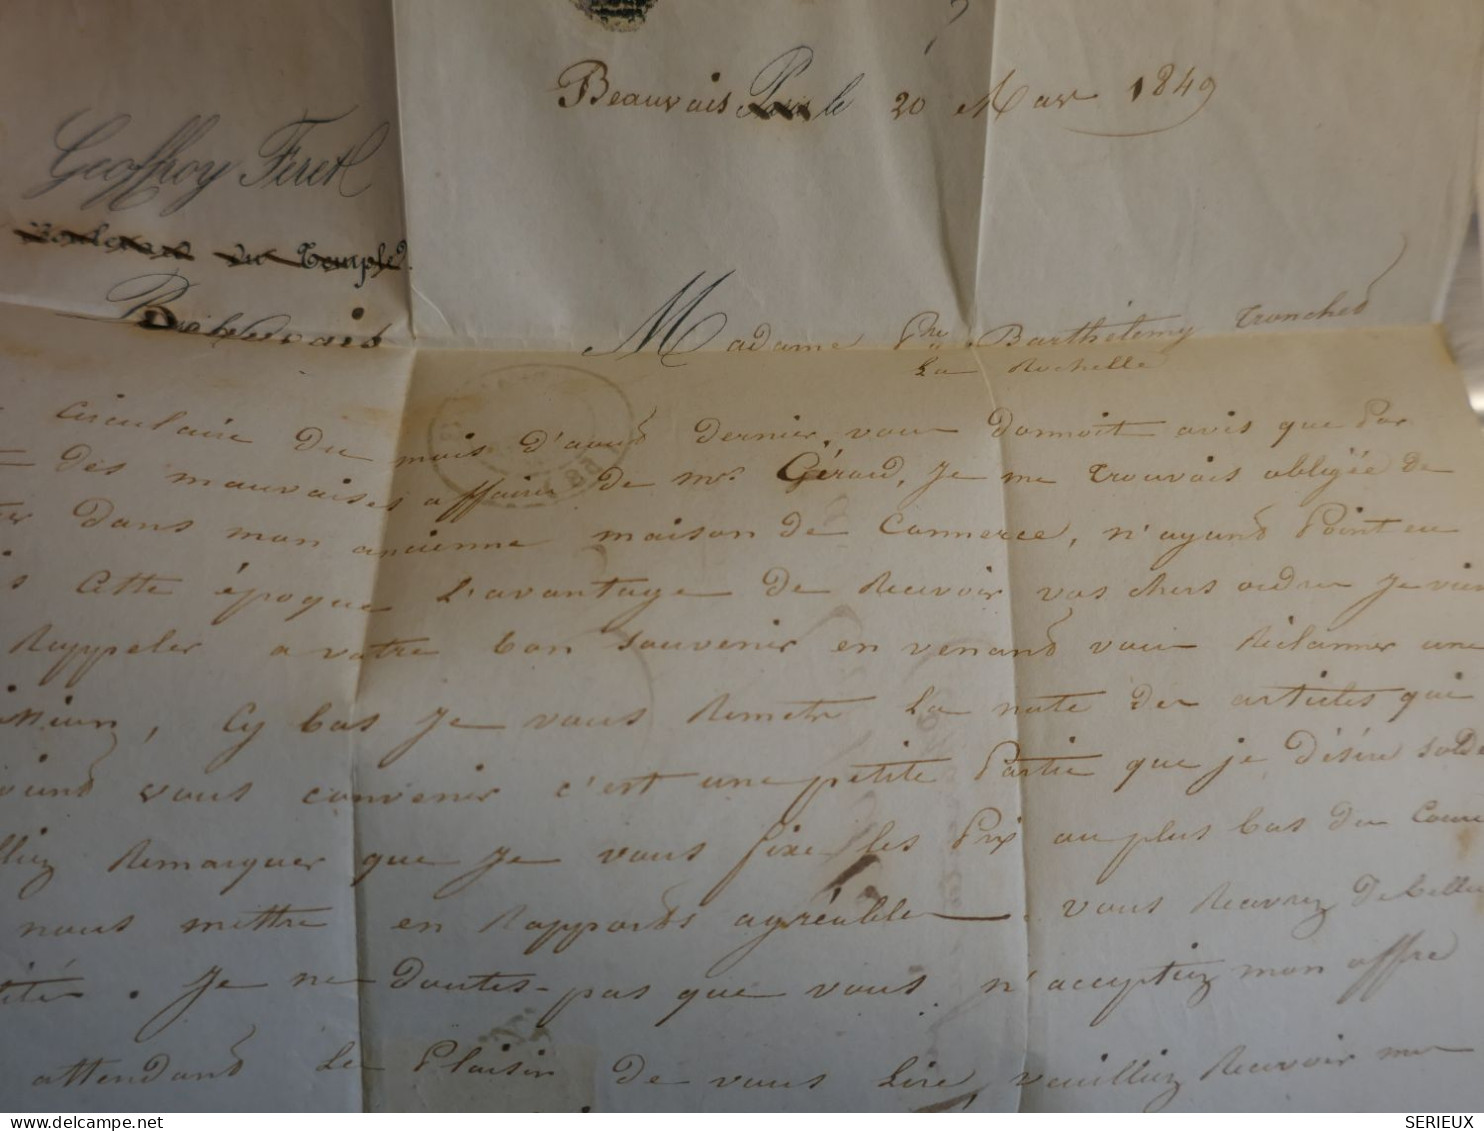 Beauvais Paris le 20 Mars 1849
Geoffroy Feret
Boulevard du Temple
Beauvais
Madame Barthélemy Tronched
La Rochelle
circulaire du mois d'aoud dernier, vous donnoit avis que Par
des mauvaises affaires de mr. Gérard, je me trouvais obligée de
dans mon ancienne maison de Commerce, n'ayand Point eu
Cette époque L'avantage de Recevoir vos chers ordres Je viens
Rappeler a votre bon souvenir en venand vous Réclamer une
, Cy bas Je vous Remetre La note des articles qui
vous convenir c'est une petite Partie que je désire solder
Remarquer que Je vous fixe les Prix au plus bas du Cours
nous mettre en Rapports agréable. vous Recevrez de belles
. Je ne doutes pas que vous n'acceptiez mon offre
attendand Le Plaisir de vous Lire, veuilliez Recevoir mes
SERIEUX